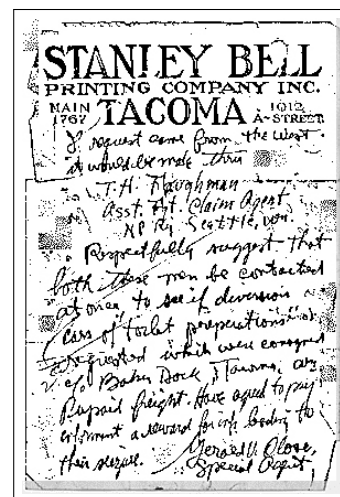 STANLEY BELL
PRINTING COMPANY INC.
MAIN 1767 TACOMA 1012 A-STREET
If request came from the West.
it would be made thru
T. H. Naughman
Asst. Frt. Claim Agent
NP Ry. Seattle, Wn.
Respectfully suggest that
both these men be contacted
at once to see if diversion
cars of toilet preparations
requested which were consigned
c/o Baker Dock Tacoma, any
Prepaid freight. Have agreed to pay
informant a reward for info leading to
their seizure.
Special Agent